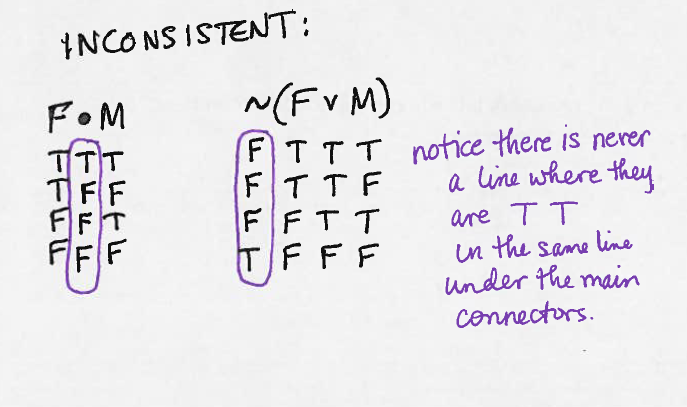 INCONSISTENT:
F • M
T T T
T F F
F F T
F F F
~(F v M)
F T T T
F T T F
F F T T
T F F F
notice there is never
a line where they
are T T
in the same line
under the main
connectors.